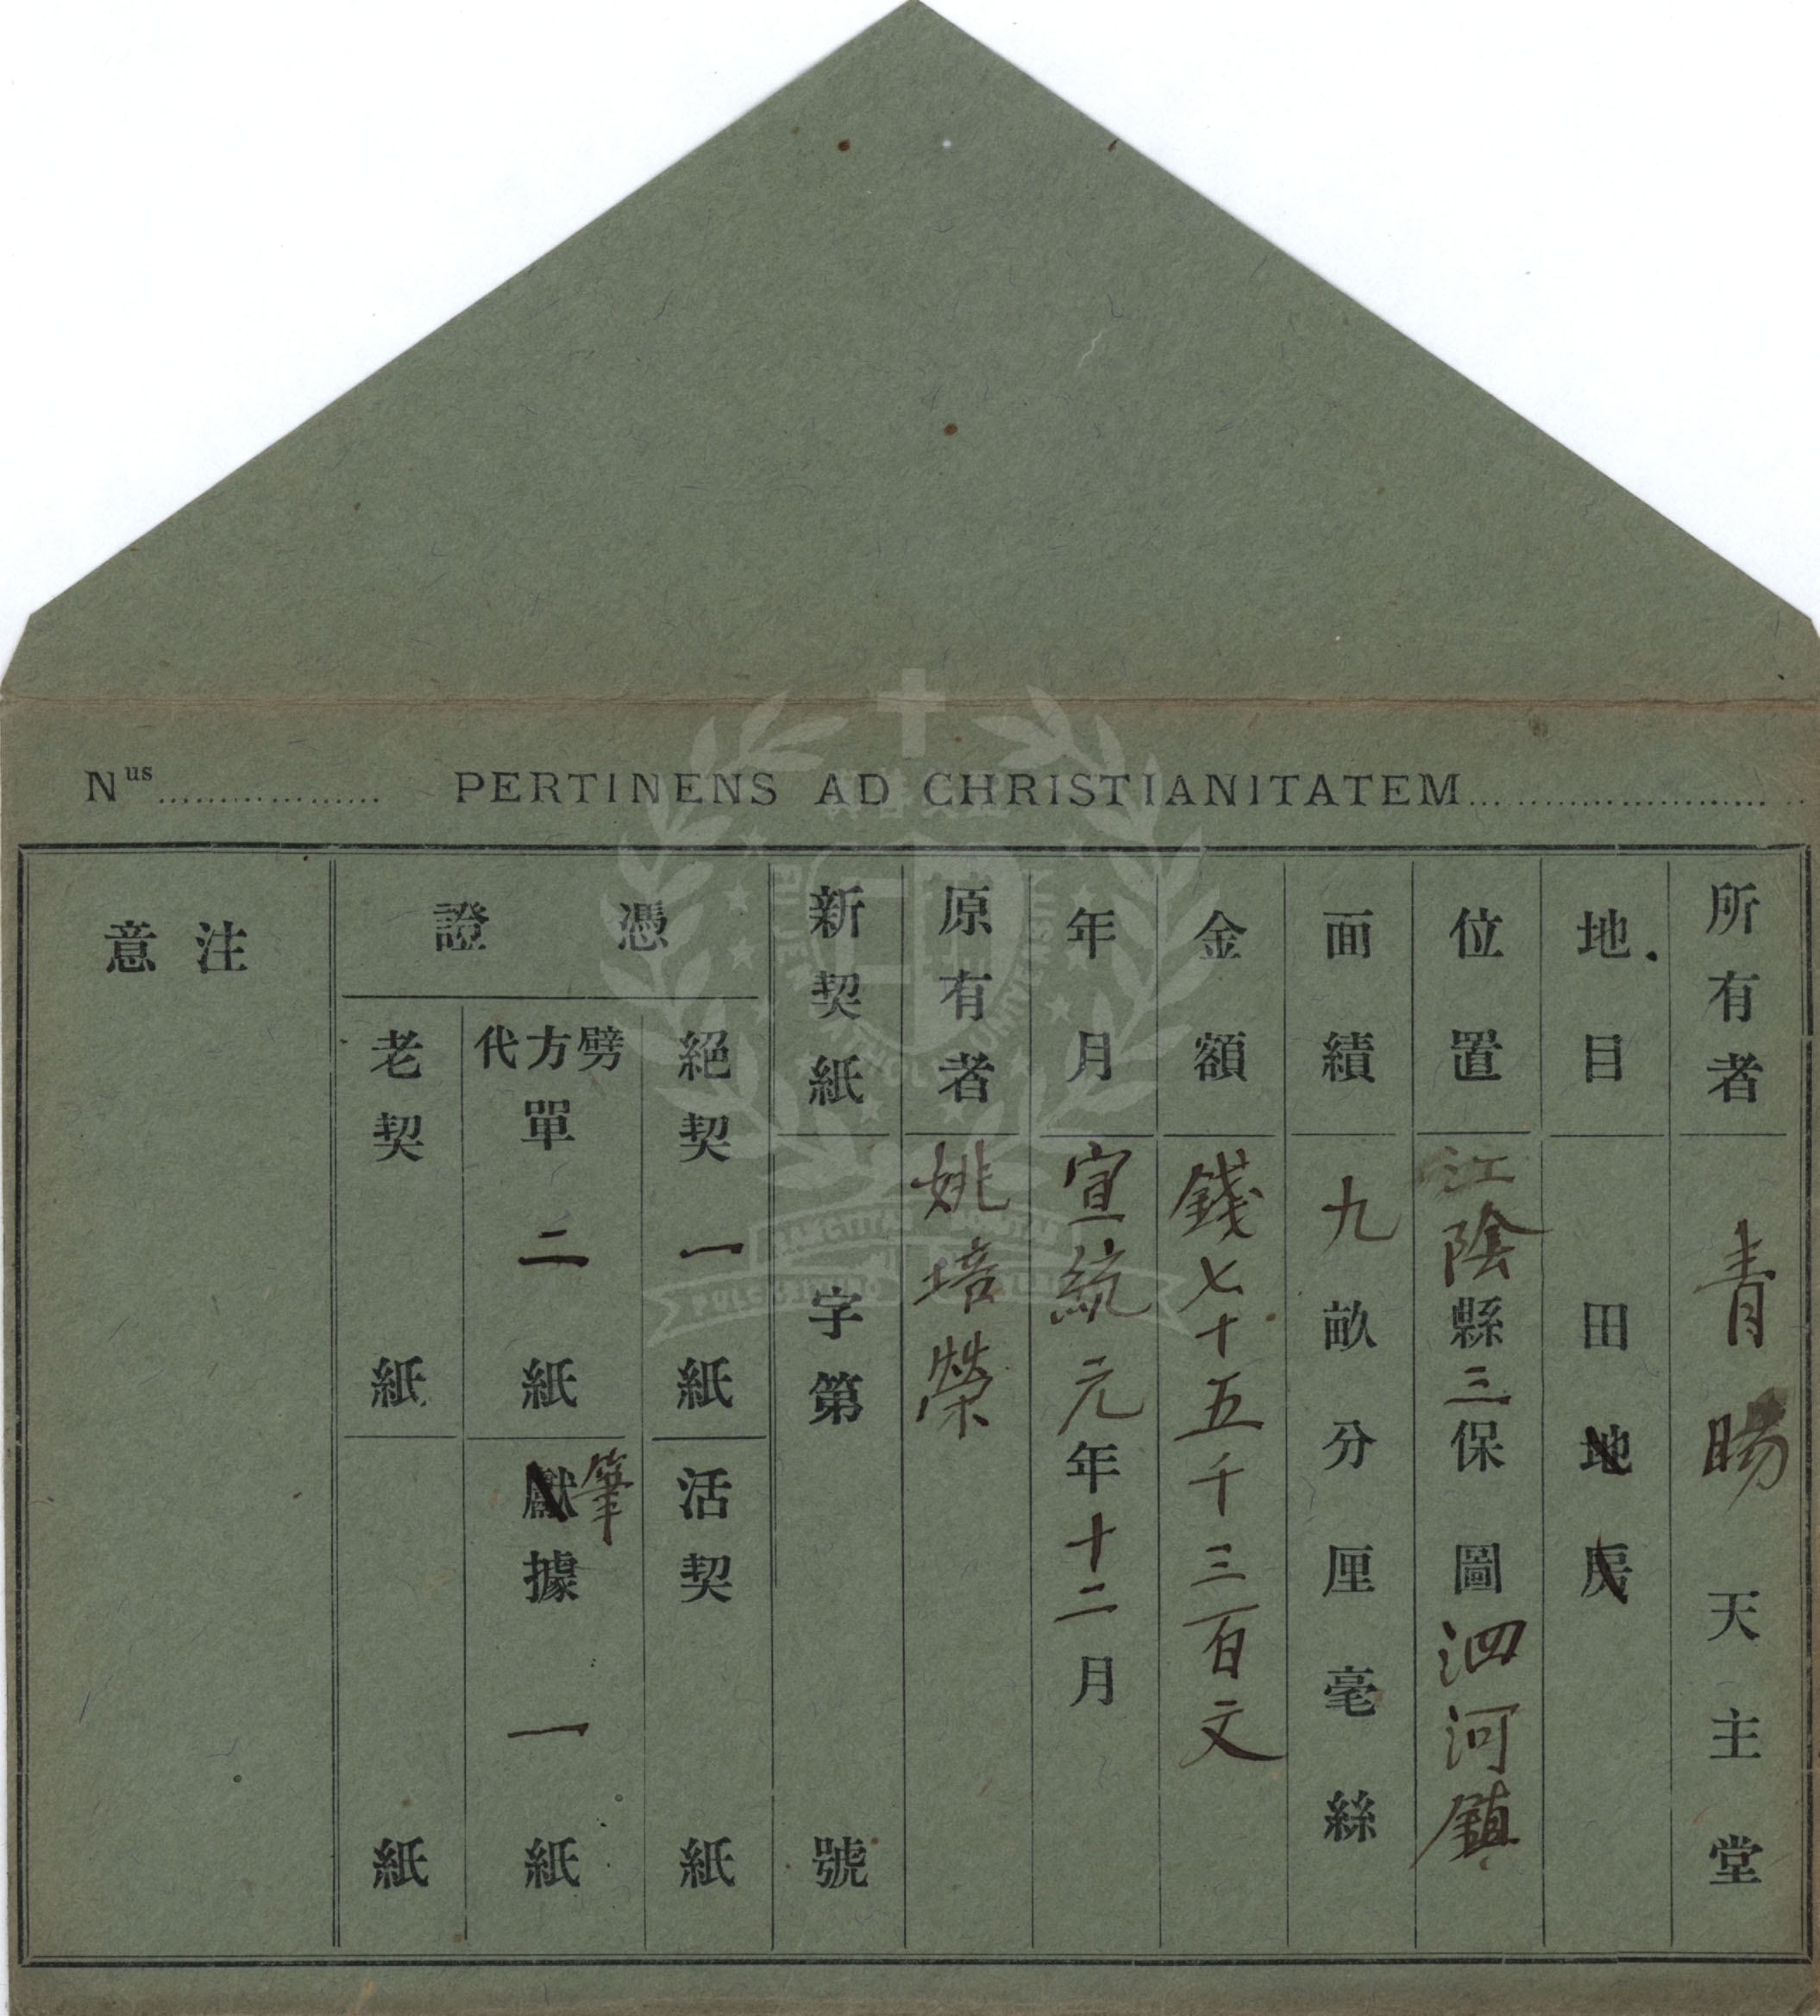 Nus.................. PERTINENS AD CHRISTIANITATEM..................
所有者 青暘天主堂
地目 田地房
位置 江陰縣三保圖泗河鎮
面績 九畝分厘毫絲
金額 錢七十五千三百文
年月 宣統元年十二月
原有者 姚培榮
新契紙 字第 號
憑證
絕契 一紙 活契 紙
劈方代單 二紙 獻筆據 一紙
老契 紙 紙
注意